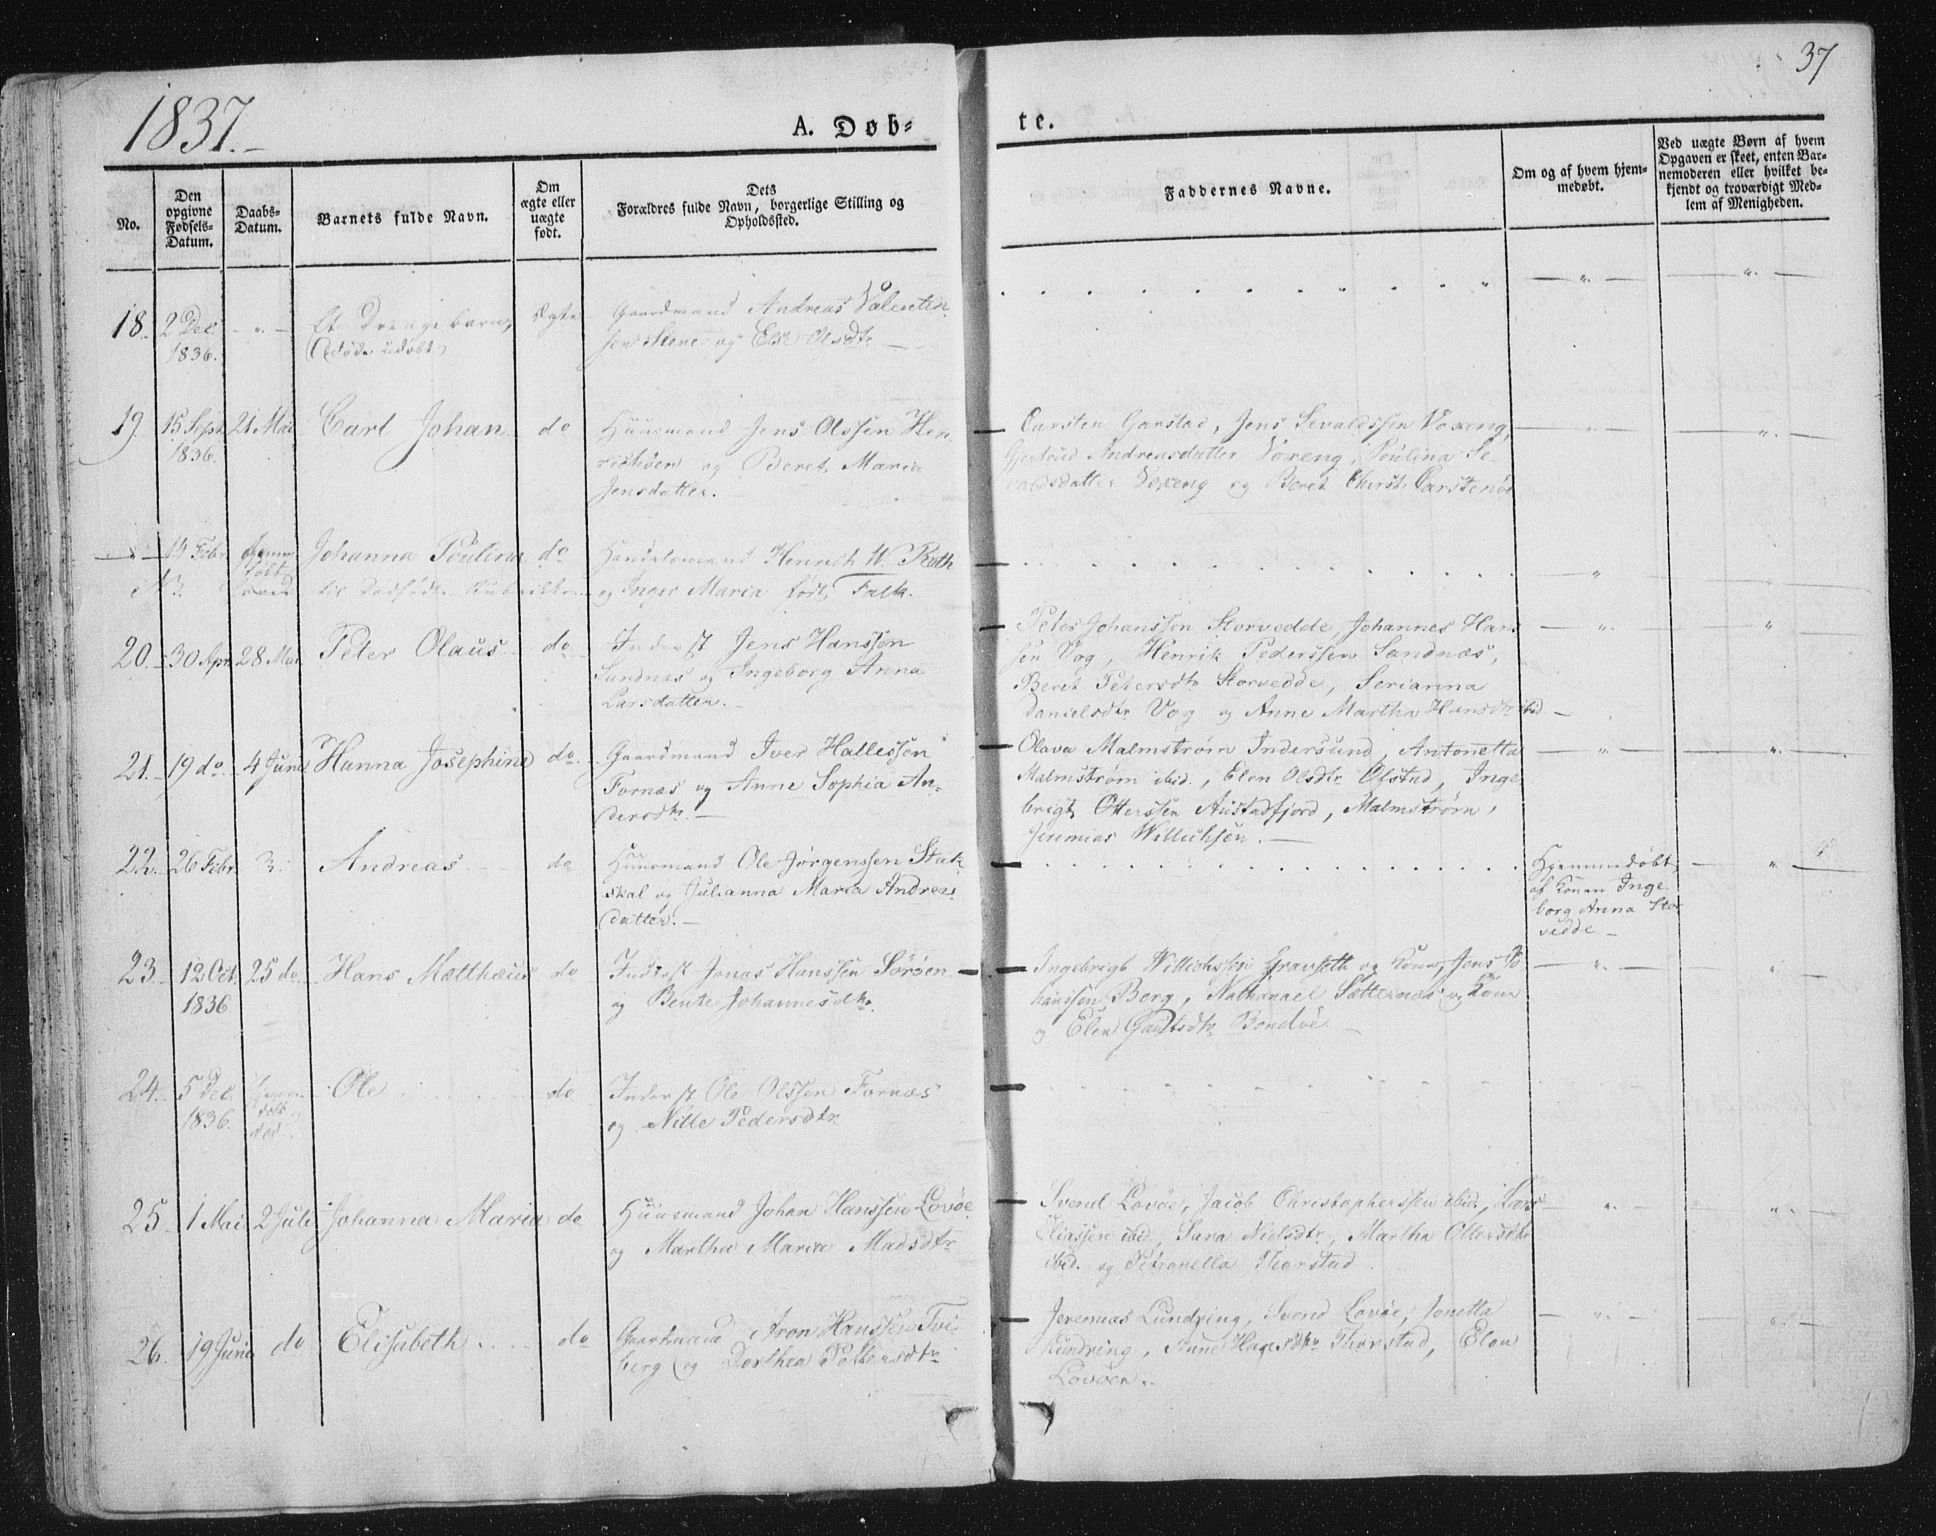 1837.
37
A. Døb-
te.
No.
Den opgivne Fødsels-Datum.
Daabs-Datum.
Barnets fulde Navn.
Om ægte eller uægte født.
Dets Forældres fulde Navn, borgerlige Stilling og Opholdssted.
Faddernes Navne.
Om og af hvem hjemmedøbt.
Ved uægte Børn af hvem Opgaven er skeet, enten Barnemoderen eller hvilket bekjendt og troværdigt Medlem af Menigheden.
18. 2 Dec. 1836. Et Drengebarn, Ægte Gaardmand Andreas Valentin-
(døde udøbt) sen Stene og Else Olsdtr
19. 15 Sept. 1836. 21 Mai Carl Johan do Huusmand Jens Olssen Hen-
richsøen og Beret Maria
Jensdatter.
Carsten Garstad, Jens Sevaldssen Voxeng,
Gjertrud Andreasdatter Voxeng, Poulina Se-
valdsdatter Voxeng og Beret Christ: Carstensøe
14 Febr. hjemmedøbt Johanna Poulina do Handelsmand Henrich W. Roth
og Inger Maria født Falk.
20. 30 Apr. 28 Mai Peter Olaus do Inderst Jens Hanssen
Sandnæs og Ingeborg Anna
Larsdatter.
Peter Johanssen Storvedde, Johannes Hans
sen Vog, Henrik Pederssen Sandnæs,
Beret Petersdtr Storvedde, Serianna
Danielsdtr Vog og Anne Martha Hansdtr ibid
21. 19 do 4 Juni Hanna Josephine do Gaardmand Iver Hallessen
Fornæs og Anne Sophia An-
dersdtr.
Olava Malmstrøm Indersund, Antonetta
Malmstrøm ibid., Elen Olsdtr Olstad, Inge-
brigt Otterssen Austadfjord, Malmstrøm,
Jeremias Willichsen.
22. 26 Febr. Andreas do Huusmand Ole Jørgenssen Stak-
skal og Julianna Maria Andreas-
datter.
Hjemmedøbt
af Konen Inge-
borg Anna Stor-
vedde.
23. 12 Oct. 1836 25 do Hans Matthæus do Inderst Jonas Hanssen Sørøen
og Bente Johannesdtr.
Ingebrigt Willichssen Gravseth og Kone, Jens Jo-
hanssen Berg, Nathanael Sætternæs og Kone
og Elen Bondøe.
24. 5 Dec. 1836. Hjemmedøbt Ole do Inderst Ole Olssen Fornæs
og Nille Pedersdtr
25. 1 Mai 2 Juli Johanna Maria do Huusmand Johan Hanssen Lovøe
og Martha Maria Madsdtr
Svend Lovøe, Jacob Christopherssen ibid, Lars
Eliassen ibid, Sara Nielsdtr, Martha Ollersdtr
ibid. og Petronella Thorstad.
26. 19 Juni do Elisabeth do Gaardmand Aron Hanssen Tvi-
berg og Dorthea Pettersdtr
Jeremias Lundring, Svend Lovøe, Jonetta
Lundring, Anne Hansdtr Thorstad, Elen
Lovøen.